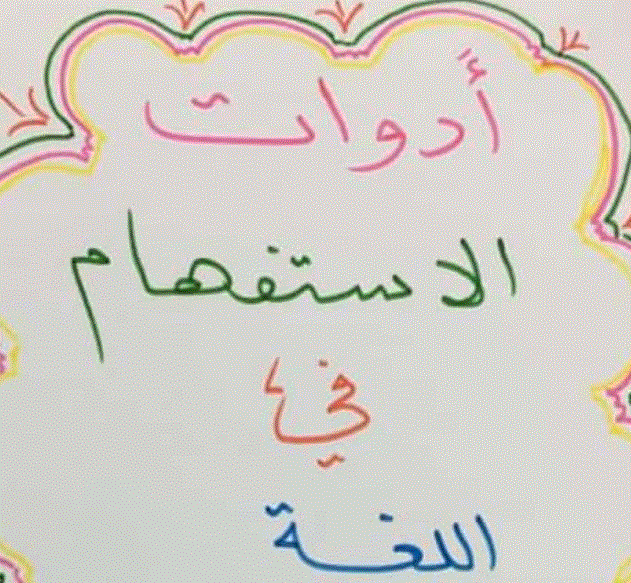 أدوات
الاستفهام
في
اللغة